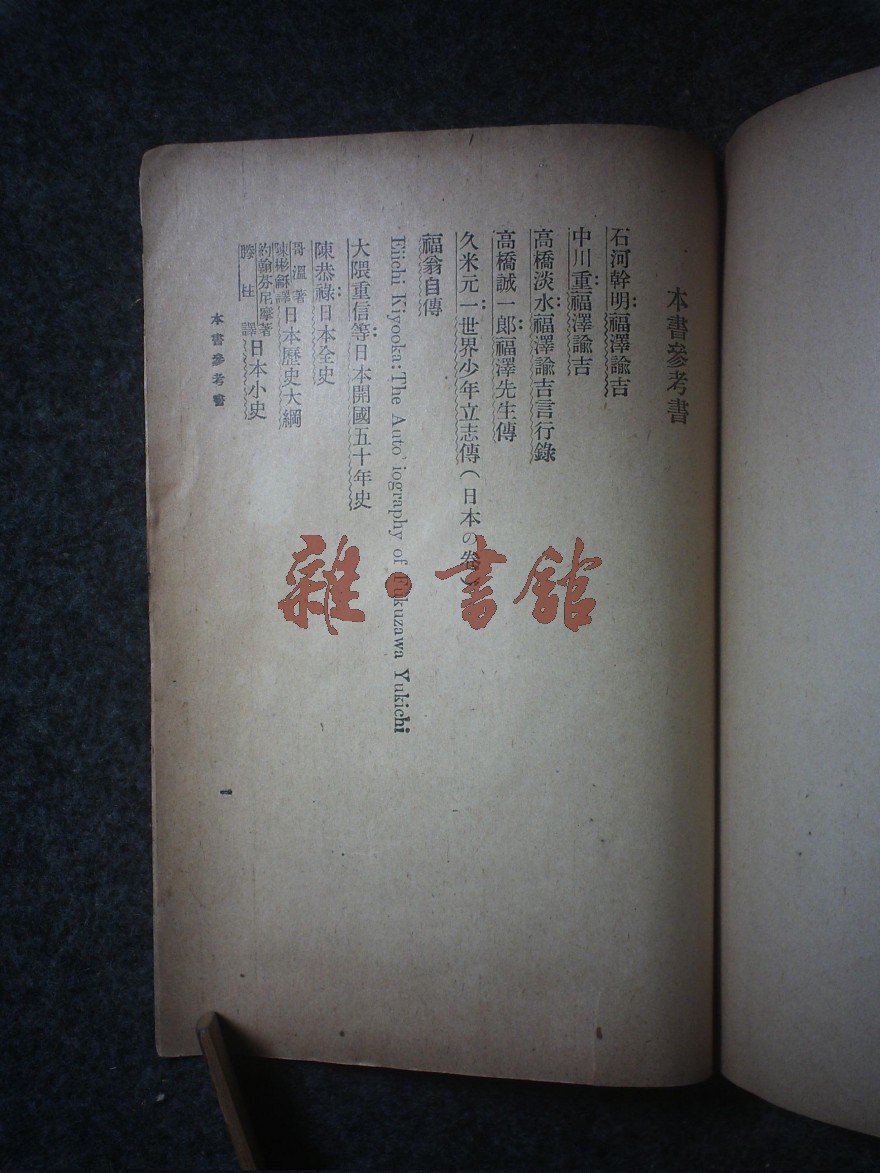 本書參考書
石河幹明：福澤諭吉
中川重：福澤諭吉
高橋淡水：福澤諭吉言行錄
高橋誠一郎：福澤先生傳
久米元一：世界少年立志傳（日本の卷）
福翁自傳
Eiichi Kiyooka: The Auto iography of Fukuzawa Yukichi
大隈重信等：日本開國五十年史
陳恭祿：日本全史
哥溫著
陳彬龢譯
日本歷史大綱
約翰芬尼摩著
滕柱譯
日本小史
本書參考書
1
雜·書館